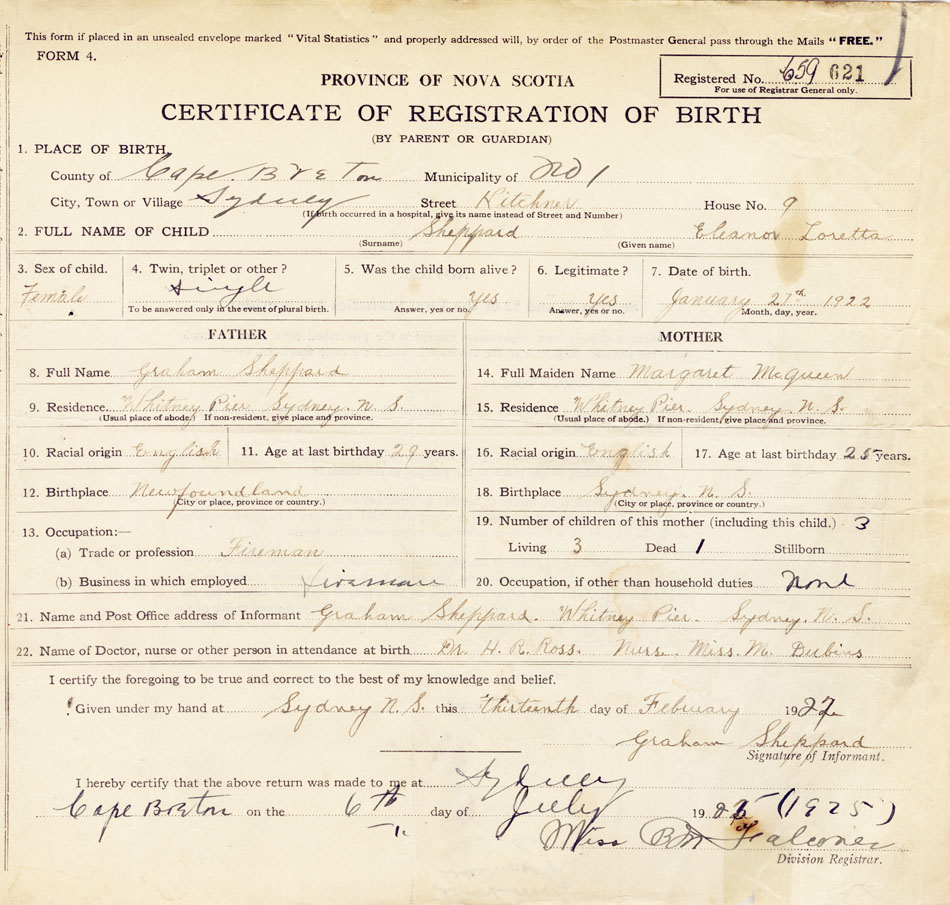 This form if placed in an unsealed envelope marked "Vital Statistics" and properly addressed will, by order of the Postmaster General pass through the Mails "FREE."
FORM 4.
Registered No. 659 621
For use of Registrar General only.
PROVINCE OF NOVA SCOTIA
CERTIFICATE OF REGISTRATION OF BIRTH
(BY PARENT OR GUARDIAN)
1. PLACE OF BIRTH,
County of Cape Breton Municipality of No 1
City, Town or Village Sydney Street Kitchner House No. 9
(If birth occurred in a hospital, give its name instead of Street and Number)
2. FULL NAME OF CHILD Sheppard Eleanor Loretta
(Surname) (Given name)
3. Sex of child. 4. Twin, triplet or other? 5. Was the child born alive? 6. Legitimate? 7. Date of birth.
Female single yes Yes January 27th 1922
To be answered only in the event of plural birth. Answer, yes or no. Answer, yes or no. Month, day, year.
FATHER MOTHER
8. Full Name Graham Sheppard 14. Full Maiden Name Margaret McQueen
9. Residence. Whitney Pier Sydney N. S. 15. Residence Whitney Pier. Sydney N. S.
(Usual place of abode.) If non-resident, give place and province. (Usual place of abode.) If non-resident, give place and province.
10. Racial origin English 11. Age at last birthday 29 years. 16. Racial origin English 17. Age at last birthday 25 years.
12. Birthplace Newfoundland 18. Birthplace Sydney. N. S.
(City or place, province or country.) (City or place, province or country.)
13. Occupation:— 19. Number of children of this mother (including this child.) 3
(a) Trade or profession Fireman Living 3 Dead 1 Stillborn
(b) Business in which employed fireman 20. Occupation, if other than household duties None
21. Name and Post Office address of Informant Graham Sheppard. Whitney Pier. Sydney. N. S.
22. Name of Doctor, nurse or other person in attendance at birth Dr. H. R. Ross. Nurse. Miss. M. Dubins
I certify the foregoing to be true and correct to the best of my knowledge and belief.
Given under my hand at Sydney N. S. this thirteenth day of February 1922
Graham Sheppard
Signature of Informant.
I hereby certify that the above return was made to me at Sydney
Cape Breton on the 6th day of July 1925 (1925)
Miss Falconer
Division Registrar.